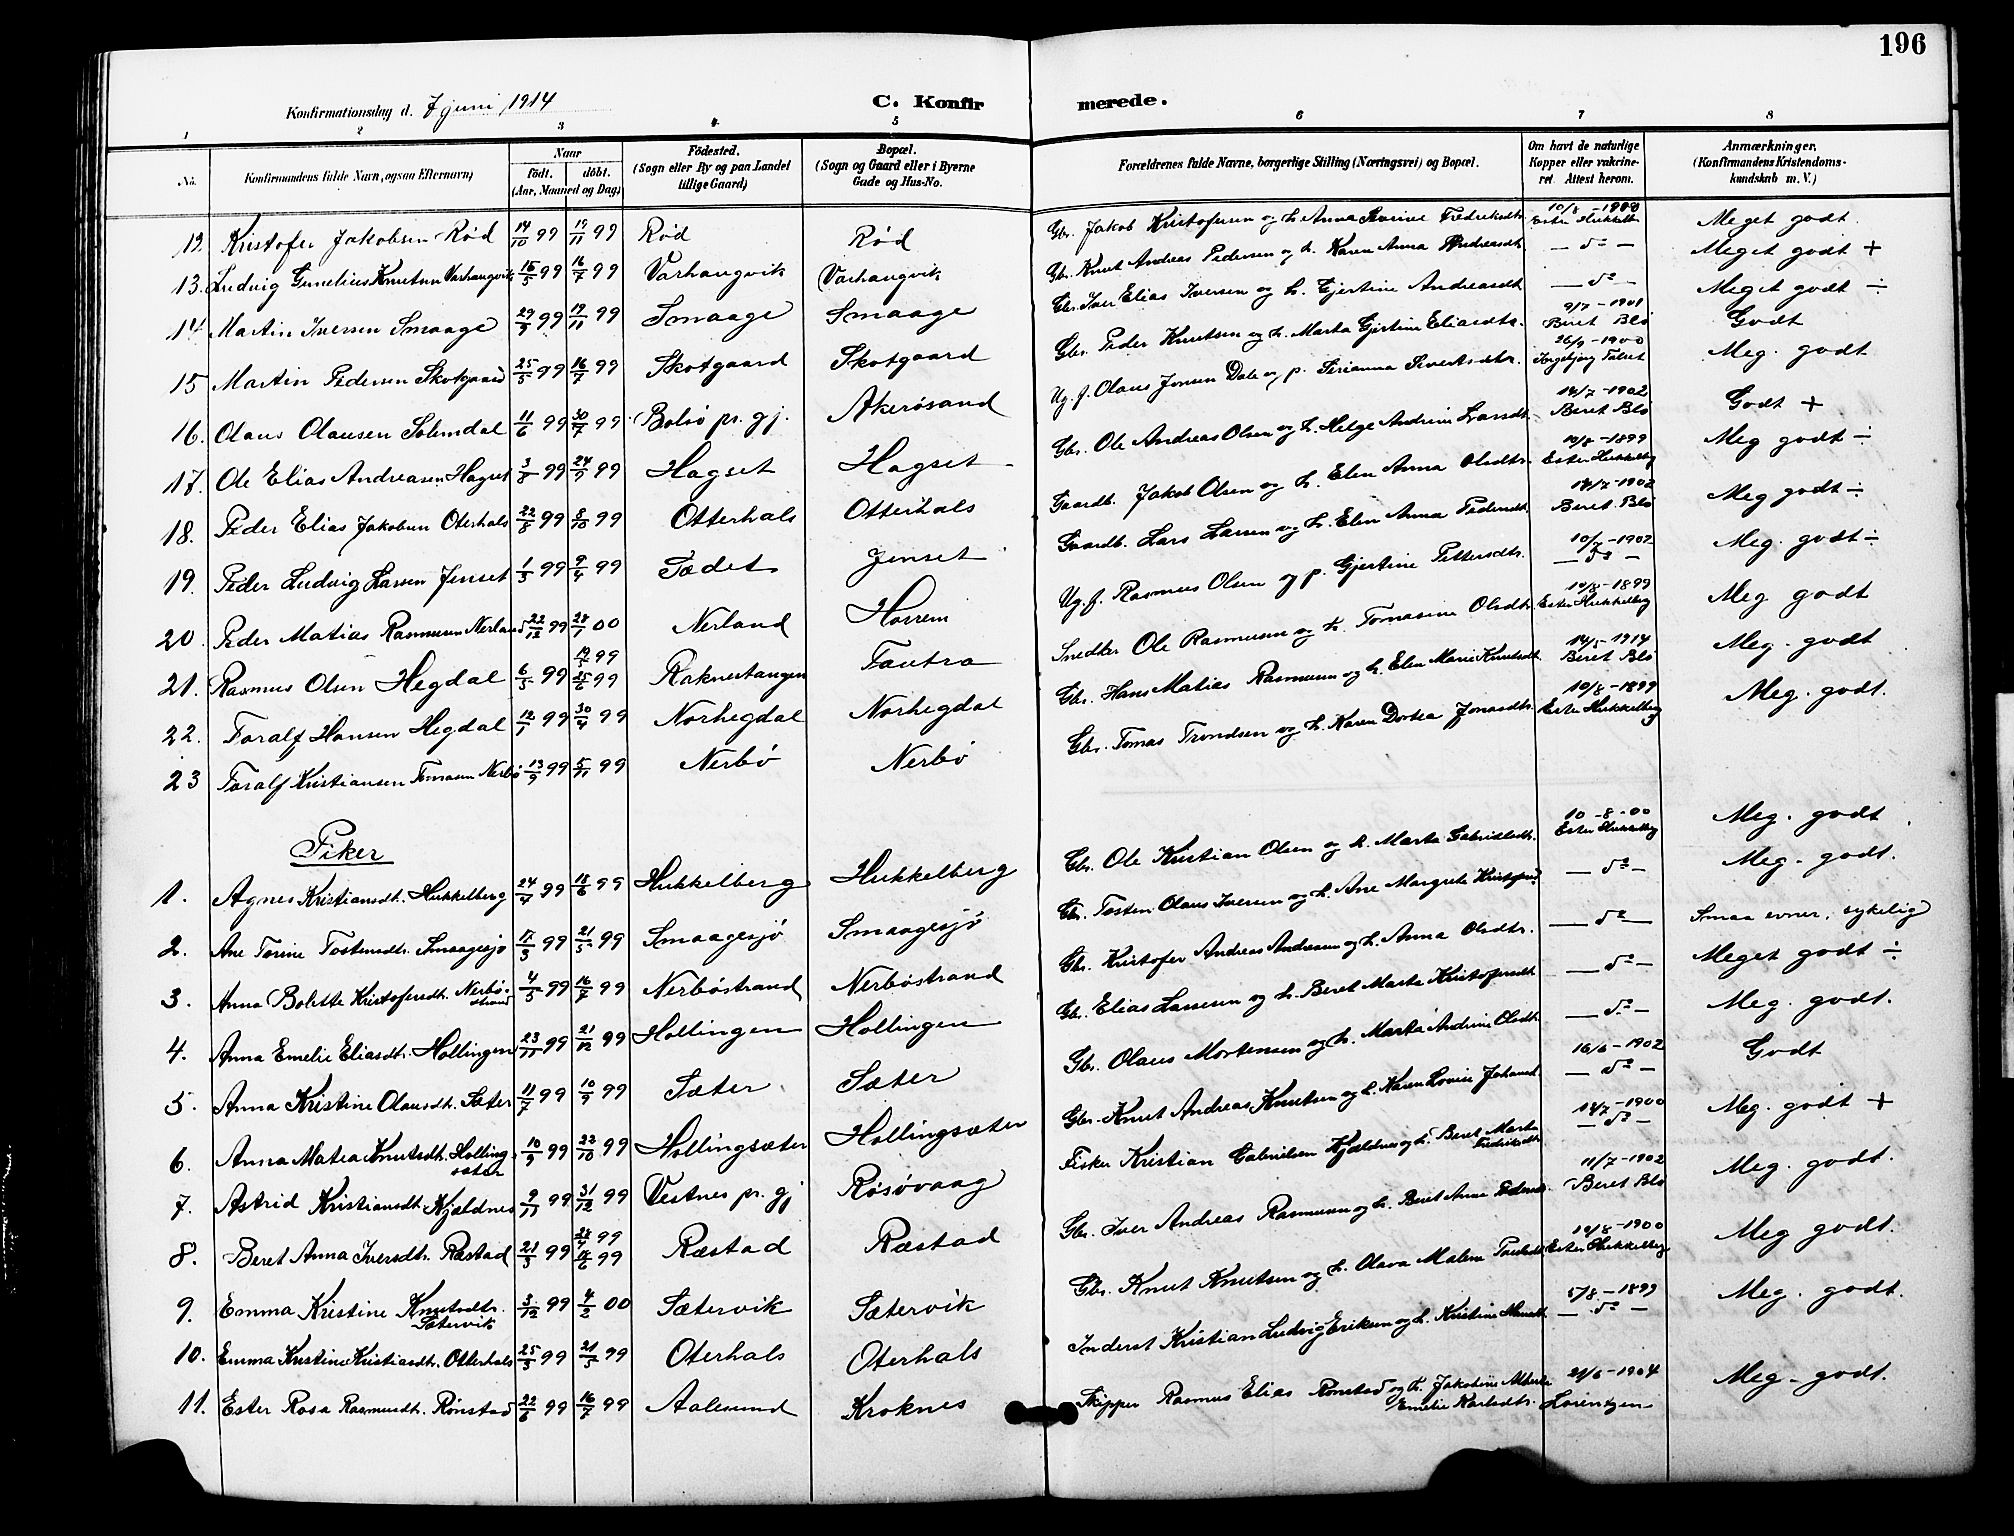 196
Konfirmationsdag d. 7 juni 1914 C. Konfirmerede.
1 2 3 4 5 6 7 8
No. Konfirmandens fulde Navn, ogsaa Efternavn) Naar född. döbt. (Aar, Maaned og Dag) Födested. (Sogn eller By og paa Landet tillige Gaard) Bopæl. (Sogn og Gaard eller i Byerne Gade og Hus-No. Forældrenes fulde Navne, borgerlige Stilling (Næringsvei) og Bopæl. Om havt de naturlige Kopper eller vakcineret. Attest herom. Anmærkninger. (Konfirmandens Kristendomskundskab m. V.)
12. Kristofer Jakobsen Rød 14/10 99 19/11 99 Rød Rød Gbr. Jakob Kristofersen og h. Anna Severine Fredriksdtr. 10/8 - 1900 Ester Hukkelb. Meget godt.
13. Ludvig Gunelius Knutsen Varhaugvik 15/5 99 16/7 99 Varhaugvik Varhaugvik Gbr. Knut Andreas Pedersen og h. Karen Anna Andreasdt. — do — Meget godt +
14 Martin Iversen Smaage 29/9 99 19/11 99 Smaage Smaage Gbr. Iver Elias Iversen og h. Gjertine Andreasdt. — do — Meget godt ÷
15 Martin Pedersen Skotgaard 25/5 99 16/7 99 Skotgaard Skotgaard Gbr. Peder Knutsen og h. Marta Gjertine Eliasdtr. 9/7 - 1901 Beret Blø Godt
16. Olaus Olausen Solemdal 11/6 99 30/7 99 Bolsø pr. gj. Akerøsand Ug. f. Olaus Jonsen Dale og p. Serianna Sivertsdtr. 26/9 - 1900 Ingebjørg Talset Meg. godt
17. Ole Elias Andreasen Hagset 3/8 99 24/9 99 Hagset Hagset Gbr. Ole Andreas Olsen og h. Helge Andrine Larsdt. 14/7 - 1902 Beret Blø Godt +
18. Peder Elias Jakobsen Oterhals 22/8 99 8/10 99 Otterhals Otterhals Gaardb. Jakob Olsen og h. Elen Anna Olsdtr. 10/8 - 1899 Ester Hukkelberg Meg godt ÷
19. Peder Ludvig Larsen Jenset 1/3 99 9/4 99 Tødet Jenset Gaardb. Lars Larsen og h. Elen Anna Pedersdt. 14/7 - 1902 Beret Blø Meg godt ÷
20 Peder Matias Rasmusen Nerland 22/12 99 28/1 00 Nerland Harrem Ug. f. Rasmus Olsen og p. Gjertine Pettersdtr. 10/7 - 1902 — do — Meg. godt ÷
21. Rasmus Olsen Hegdal 6/5 99 99 25/6 99 Raknestangen Tautra Snedker Ole Rasmusen og h. Tomasine Olsdtr. 10/8 - 1899 Ester Hukkelberg Meg godt
22. Toralf Hansen Hegdal 12/1 99 30/4 99 Norhegdal Norhegdal Gbr. Hans Matias Rasmusen og h. Elen Marie Knutsdt. 14/5 - 1914 Beret Blø Meg. godt
23 Toralf Kristiansen Tomasen Nerbø 13/9 99 5/11 99 Nerbø Nerbø Gbr. Tomas Trondsen og h. Karen Dortea Jonasdtr. 10/8 - 1899 Ester Hukkelberg Meg. godt.
Piker
1. Agnes Kristiansdt. Hukkelberg 24/4 99 18/6 99 Hukkelberg Hukkelberg Gbr. Ole Kristian Olsen og h. Marta Gabrielsdtr. 10 - 8 - 00 Ester Hukkelberg Meg. godt
2. Ane Torine Tostensdtr. Smaagesjø 17/3 99 21/5 99 Smaagesjø Smaagesjø Gbr. Tosten Olaus Iversen og h. Ane Margrete Kristofersd. — do — Meg. godt.
3. Anna Bolette Kristofersdt. Nerbøstrand 4/5 99 16/7 99 Nerbøstrand Nerbøstrand Gbr. Kristofer Andreas Andreasen og h. Anna Olsdtr. — do — Smaa evner, sykelig
4. Anna Emelie Eliasdt. Hollingen 23/11 99 21/12 99 Hollingen Hollingen Gbr. Elias Larsen og h. Beret Marta Kristofersdt. — do — Meget godt ÷
5. Anna Kristine Olausdt. Sæter 11/7 99 10/9 99 Sæter Sæter Gbr. Olaus Mortensen og h. Marta Andrine Olsdt. — do — Meg. godt.
6. Anna Matea Knutsdt. Hollingsæter 10/9 99 22/10 99 Hollingsæter Hollingsæter Gbr. Knut Andreas Knutsen og h. Karen Lovise Johansd. 16/6 - 1902 — do — Godt
7. Astrid Kristiansdt. Kjældnes 9/11 99 31/12 99 Vestnes pr. gj Røsøvaag Fisker Kristian Gabrielsen Kjældnes og h. Beret Marta Fredriksdt. 14/7 - 1900 — do — Meg. godt +
8. Beret Anna Iversdtr. Ræstad 21/3 99 99 18/6 99 Ræstad Ræstad Gbr. Iver Andreas Rasmusen og h. Beret Anne Pedersd. 11/7 - 1902 Beret Blø Meg. godt.
9. Emma Kristine Knutsdtr. Sætervik 3/12 99 4/2 00 Sætervik Sætervik Gbr. Knut Knutsen og h. Olava Malene Paulsdt. 10/8 - 1900 Ester Hukkelberg Meg godt.
10. Emma Kristine Kristiansdt. Otterhals 25/3 99 21/5 99 Oterhals Oterhals Inderst Kristian Ludvig Eriksen og h. Kristine Hansdt. 5/8 - 1899 — do — Meg. godt.
11. Ester Rosa Rasmusdt. Rønstad 22/6 99 16/7 99 Aalesund Kroknes Skipper Rasmus Elias Rønstad og h. Jakobine Alberte Emelie Karlsdtr. 21/6 - 1904 Lorentzen Meg. godt.